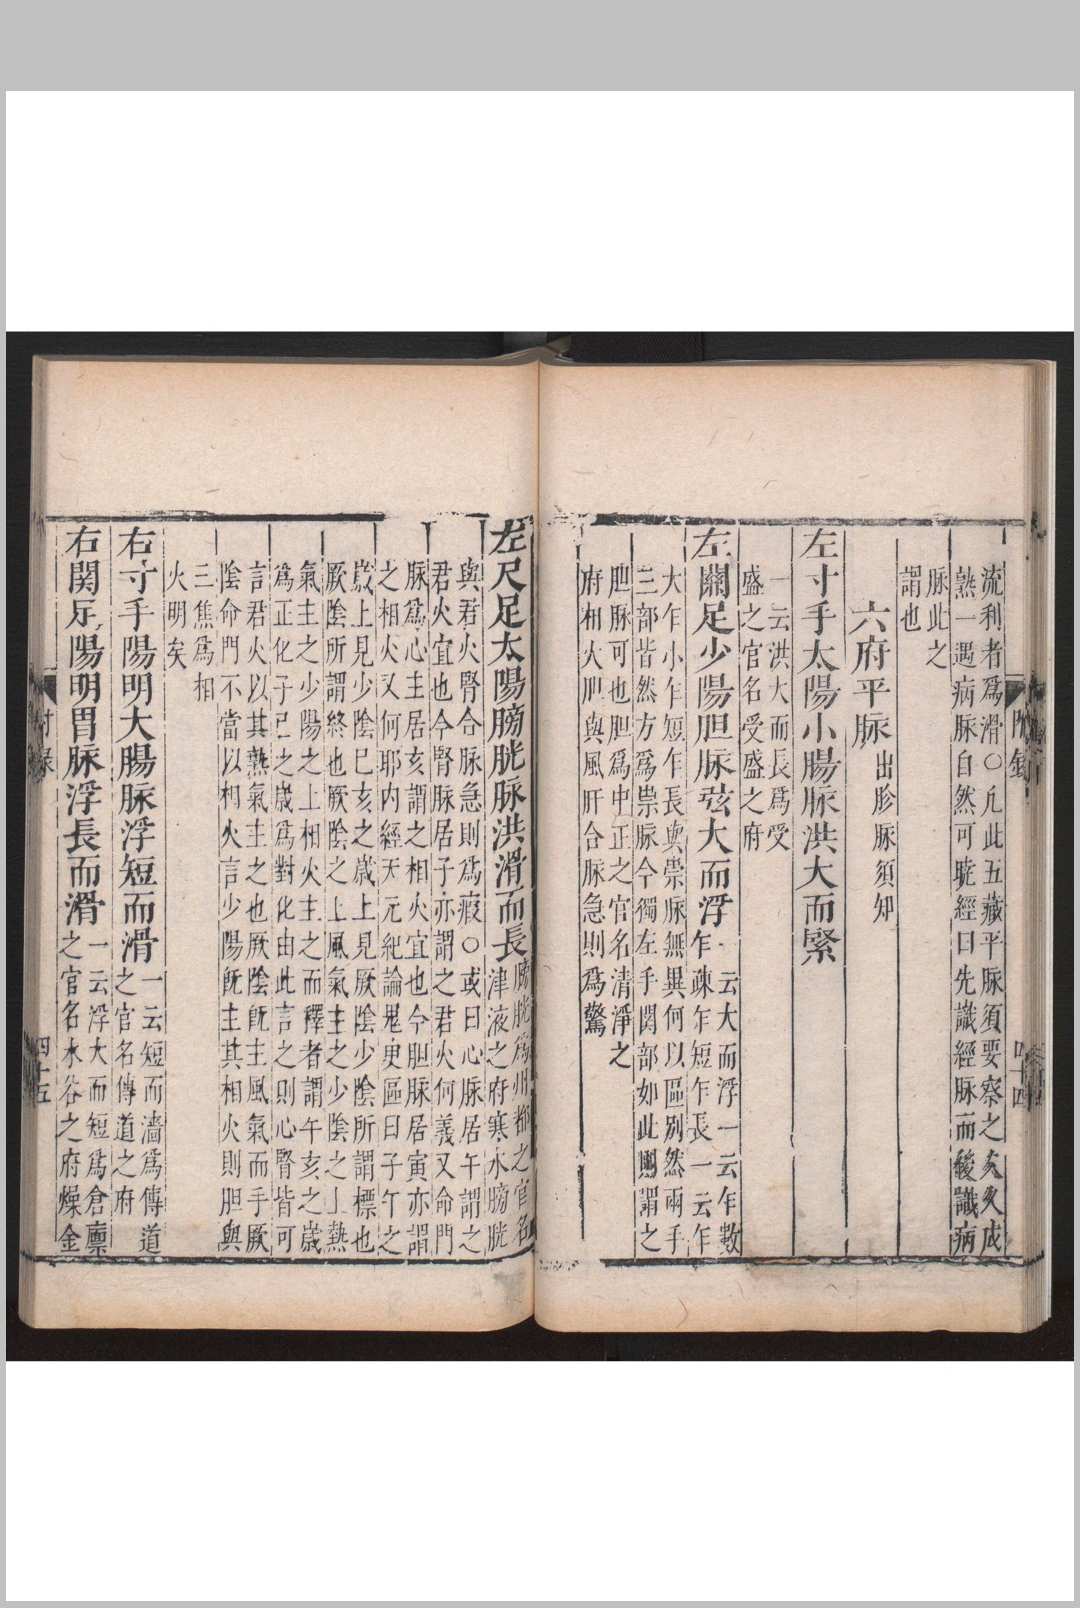 流利者爲滑○凡此五藏平脉須要察之久久成
熟一遇病脉自然可曉經曰先識經脉而後識病
脉此之
謂也
六府平脉出胗脉須知
左寸手太陽小腸脉洪大而緊
一云洪大而長爲受
盛之官名受盛之府
左關足少陽胆脉弦大而浮一云大而浮一云乍數
乍疎乍短乍長一云乍
大乍小乍短乍長與祟脉無異何以區别然兩手
三部皆然方爲祟脉今獨左手関部如此則謂之
胆脉可也胆爲中正之官名清淨之
府相火胆與風肝合脉急則爲驚
附錄
四十四
左尺足太陽膀胱脉洪滑而長膀胱爲州都之官名
津液之府寒水膀胱
與君火腎合脉急則爲瘕○或曰心脉居午謂之
君火宜也今腎脉居子亦謂之君火何義又命門
脉爲心主居亥謂之相火宜也今胆脉居寅亦謂
之相火又何耶内經天元紀論鬼臾區曰子午之
歲上見少陰巳亥之歲上見厥陰少陰所謂標也
厥陰所謂終也厥陰之上風氣主之少陰之上熱
氣主之少陽之上相火主之而釋者謂午亥之歲
爲正化子巳之歲爲對化由此言之則心腎皆可
言君火以其熱氣主之也厥陰旣主風氣而手厥
陰命門不當以相火言少陽旣主其相火則胆與
三焦爲相
火明矣
右寸手陽明大腸脉浮短而滑一云短而濇爲傳道
之官名傳道之府
右関足陽明胃脉浮長而滑一云浮大而短爲倉廪
之官名水谷之府燥金
附錄
四十五